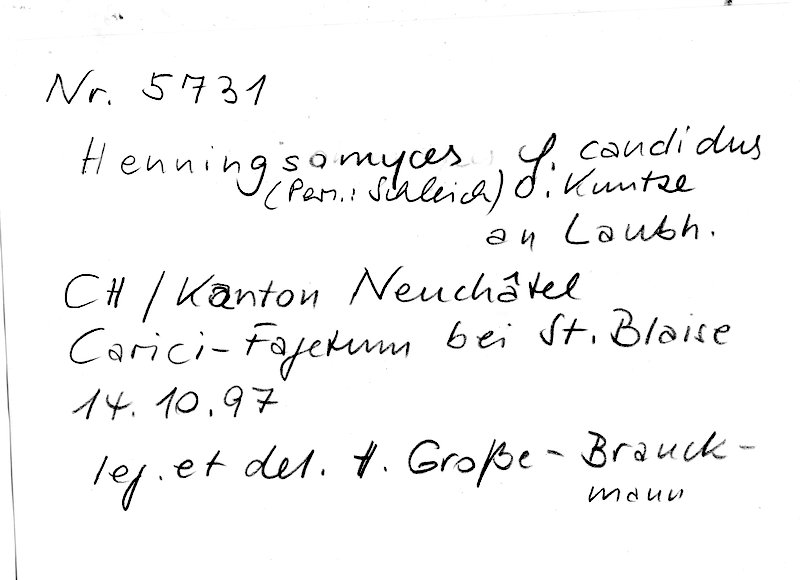 Nr. 5731
Henningsomyces f. candidus
(Pers.: Schleich) O. Kuntze
an Laubh.
CH / Kanton Neuchâtel
Carici-Fagetum bei St. Blaise
14.10.97
leg. et det. H. Große-Brauck-
mann